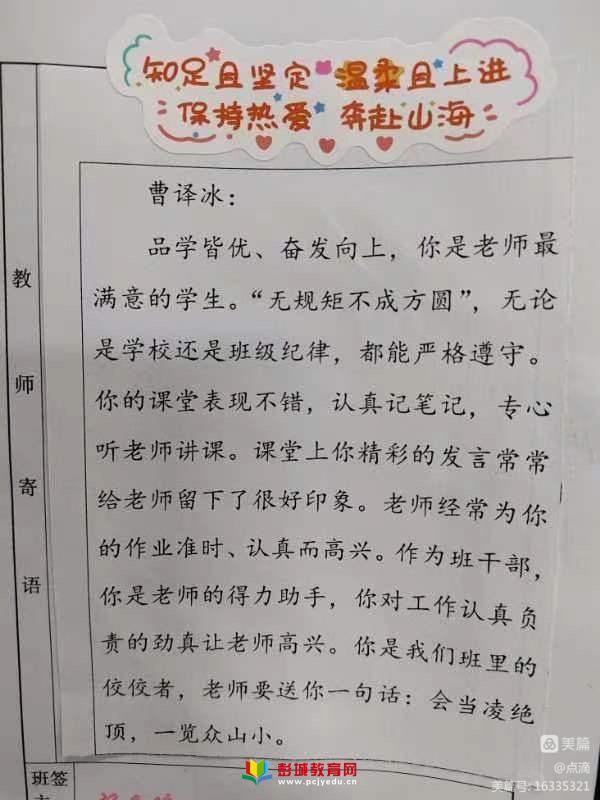 知足且坚定 温柔且上进
保持热爱 奔赴山海
教师寄语
曹译冰：
品学皆优、奋发向上，你是老师最
满意的学生。“无规矩不成方圆”，无论
是学校还是班级纪律，都能严格遵守。
你的课堂表现不错，认真记笔记，专心
听老师讲课。课堂上你精彩的发言常常
给老师留下了很好印象。老师经常为你
的作业准时、认真而高兴。作为班干部，
你是老师的得力助手，你对工作认真负
责的劲真让老师高兴。你是我们班里的
佼佼者，老师要送你一句话：会当凌绝
顶，一览众山小。
班签
美篇
@点滴
美篇号：16335321
彭城教育网
www.pcjyedu.cn